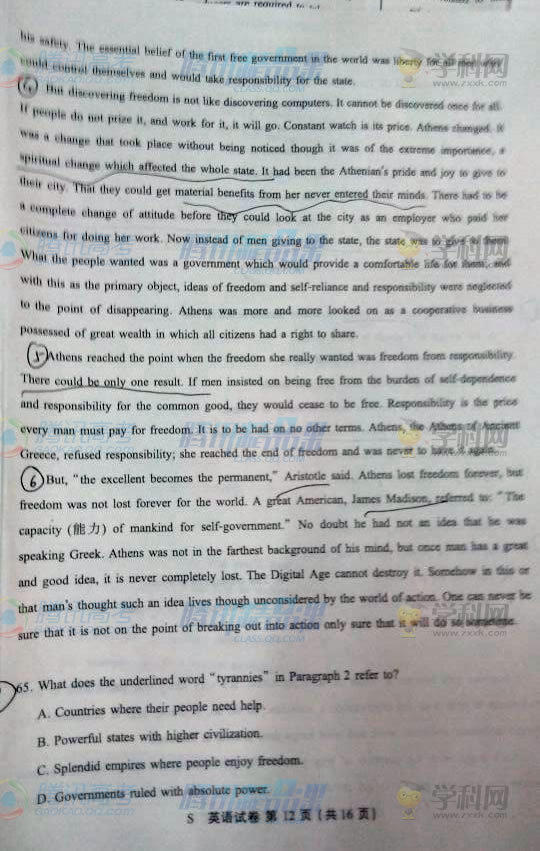 his safety. The essential belief of the first free government in the world was liberty for all men who
could control themselves and would take responsibility for the state.
(4) But discovering freedom is not like discovering computers. It cannot be discovered once for all.
If people do not prize it, and work for it, it will go. Constant watch is its price. Athens changed. It
was a change that took place without being noticed though it was of the extreme importance, a
spiritual change which affected the whole state. It had been the Athenian's pride and joy to give to
their city. That they could get material benefits from her never entered their minds. There had to be
a complete change of attitude before they could look at the city as an employer who paid her
citizens for doing her work. Now instead of men giving to the state, the state was to give to them.
What the people wanted was a government which would provide a comfortable life for them; and
with this as the primary object, ideas of freedom and self-reliance and responsibility were neglected
to the point of disappearing. Athens was more and more looked on as a cooperative business
possessed of great wealth in which all citizens had a right to share.
(5) Athens reached the point when the freedom she really wanted was freedom from responsibility.
There could be only one result. If men insisted on being free from the burden of self-dependence
and responsibility for the common good, they would cease to be free. Responsibility is the price
every man must pay for freedom. It is to be had on no other terms. Athens, the Athens of Ancient
Greece, refused responsibility; she reached the end of freedom and was never to have it again.
(6) But, "the excellent becomes the permanent," Aristotle said. Athens lost freedom forever, but
freedom was not lost forever for the world. A great American, James Madison, referred to: "The
capacity (能力) of mankind for self-government." No doubt he had not an idea that he was
speaking Greek. Athens was not in the farthest background of his mind, but once man has a great
and good idea, it is never completely lost. The Digital Age cannot destroy it. Somehow in this or
that man's thought such an idea lives though unconsidered by the world of action. One can never be
sure that it is not on the point of breaking out into action only sure that it will do so sometime.
65. What does the underlined word "tyrannies" in Paragraph 2 refer to?
A. Countries where their people need help.
B. Powerful states with higher civilization.
C. Splendid empires where people enjoy freedom.
D. Governments ruled with absolute power.
S 英语试卷 第 12 页 (共 16 页)
腾讯高考
GAOKAO.QQ.COM
腾讯精品课
CLASS.QQ.COM
学科网
www.zxxk.com